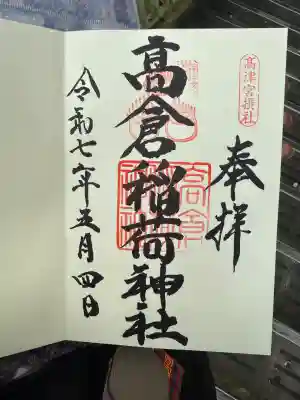 高津宮摂社
奉拝
高倉稲荷神社
令和七年五月四日